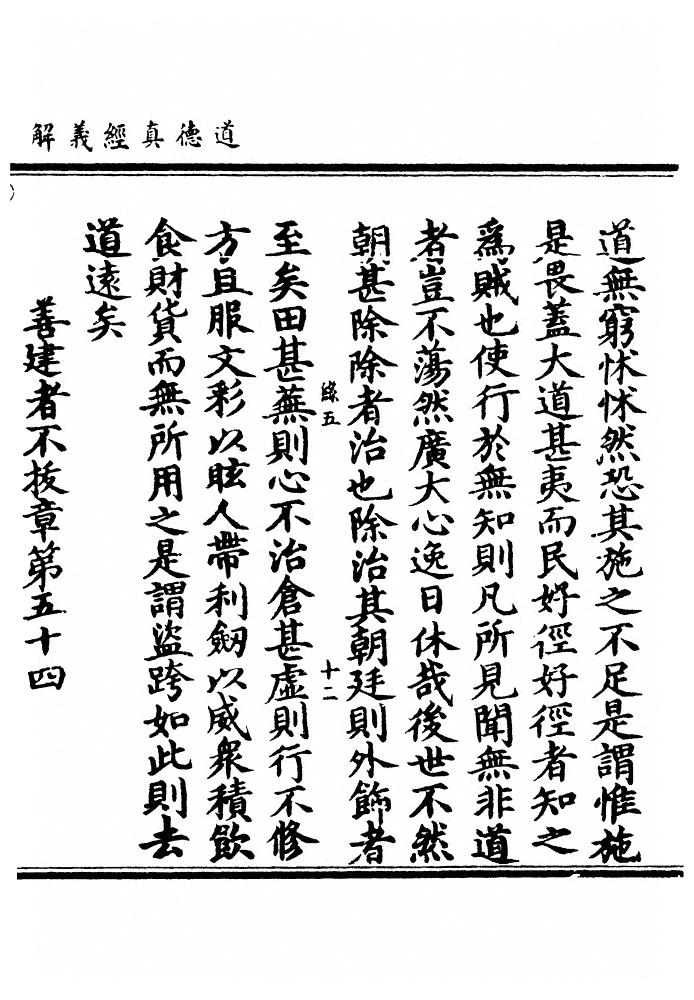 道德真經義解
道無窮怵怵然恐其施之不足是謂惟施
是畏蓋大道甚夷而民好徑好徑者知之
爲賊也使行於無知則凡所見聞無非道
者豈不蕩然廣大心逸日休哉後世不然
朝甚除除者治也除治其朝廷則外飾者
絲五
十二
至矣田甚蕪則心不治倉甚虛則行不修
方且服文彩以眩人帶利劒以威衆積飲
食財貨而無所用之是謂盜跨如此則去
道遠矣
善建者不拔章第五十四